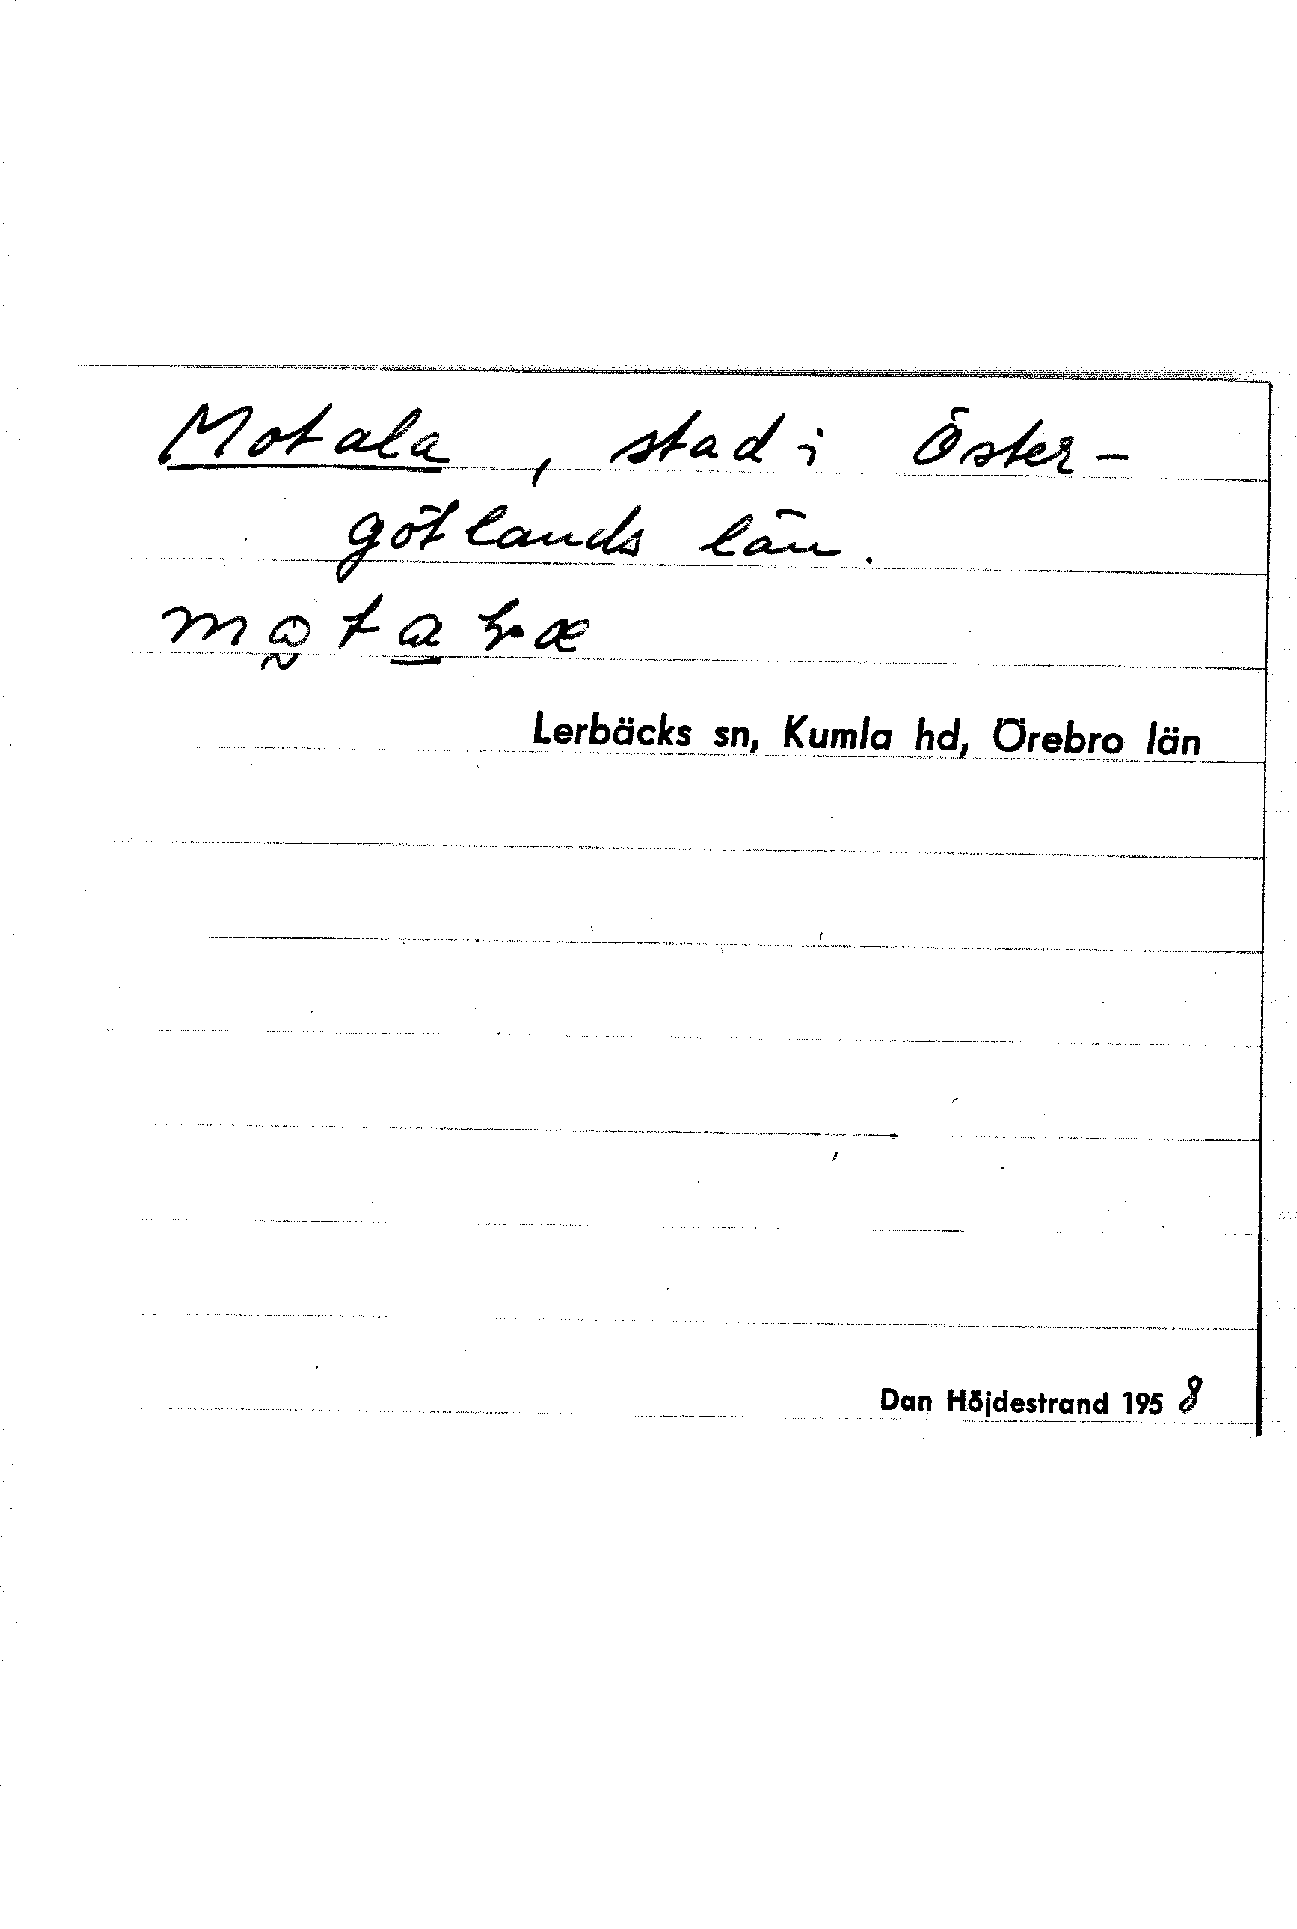 Motala, stad i Öster-
götlands län.
Lerbäcks sn, Kumla hd, Örebro län
Dan Höjdestrand 1958